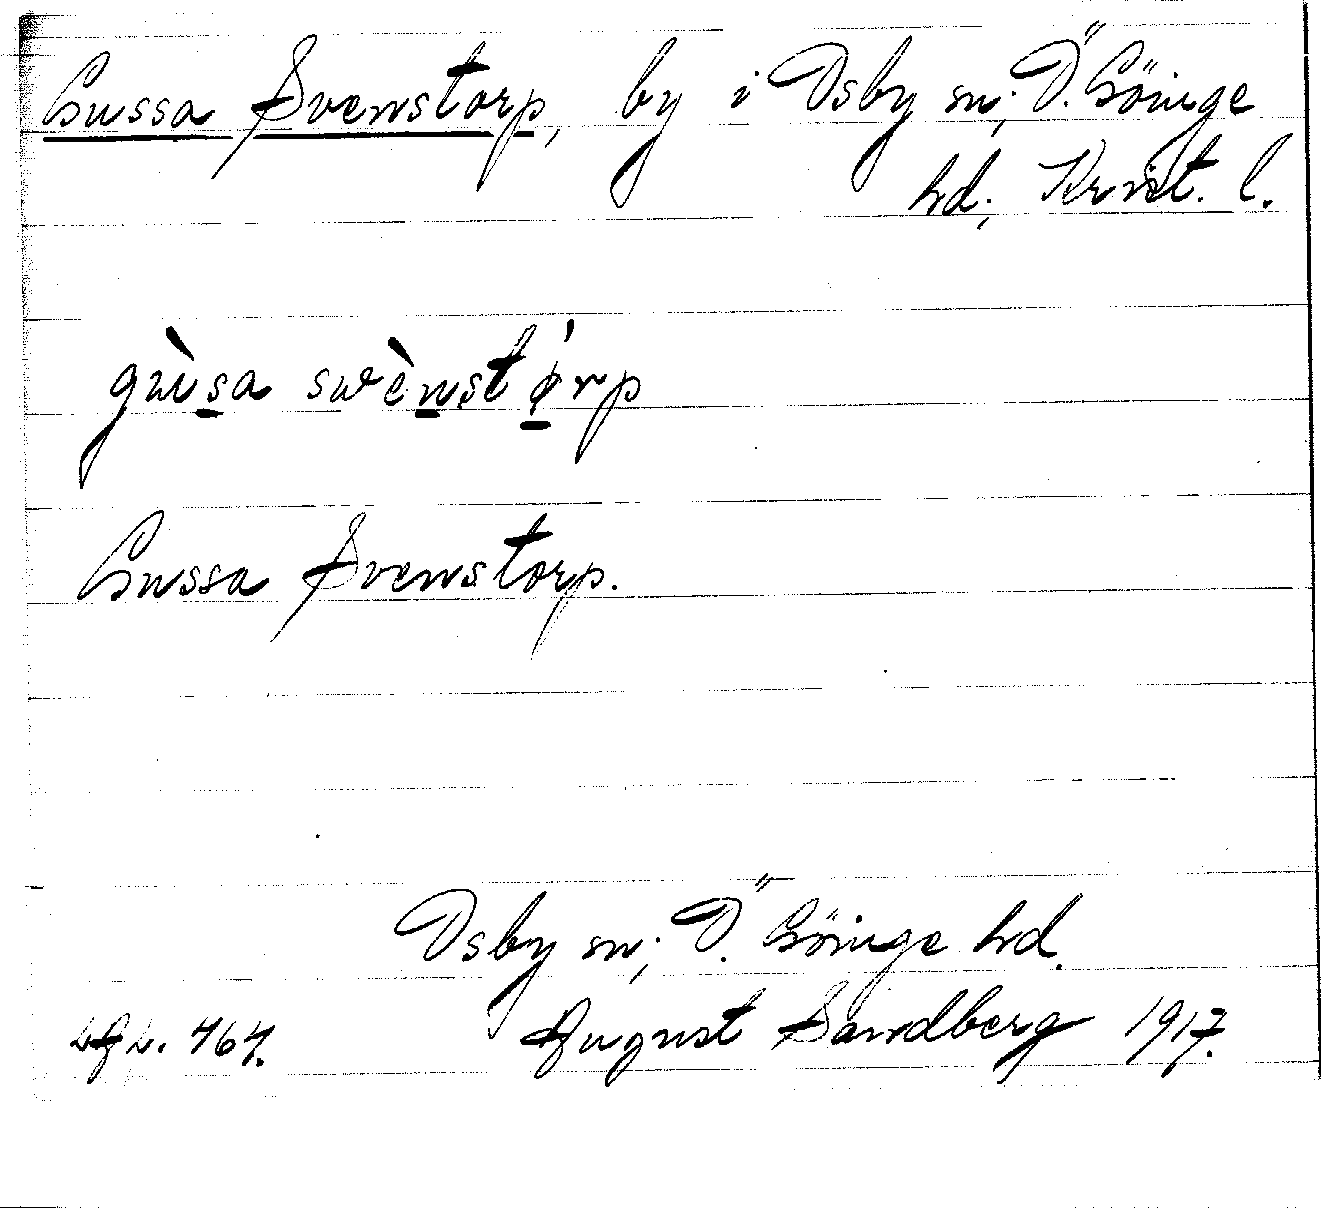 Gussa Svenstorp, by i Osby sn; Ö. Göinge
hd; Krist. l.
gùsa swènstǿrp
Gussa Svenstorp.
Osby sn; Ö. Göinge hd.
August Sandberg 1917.